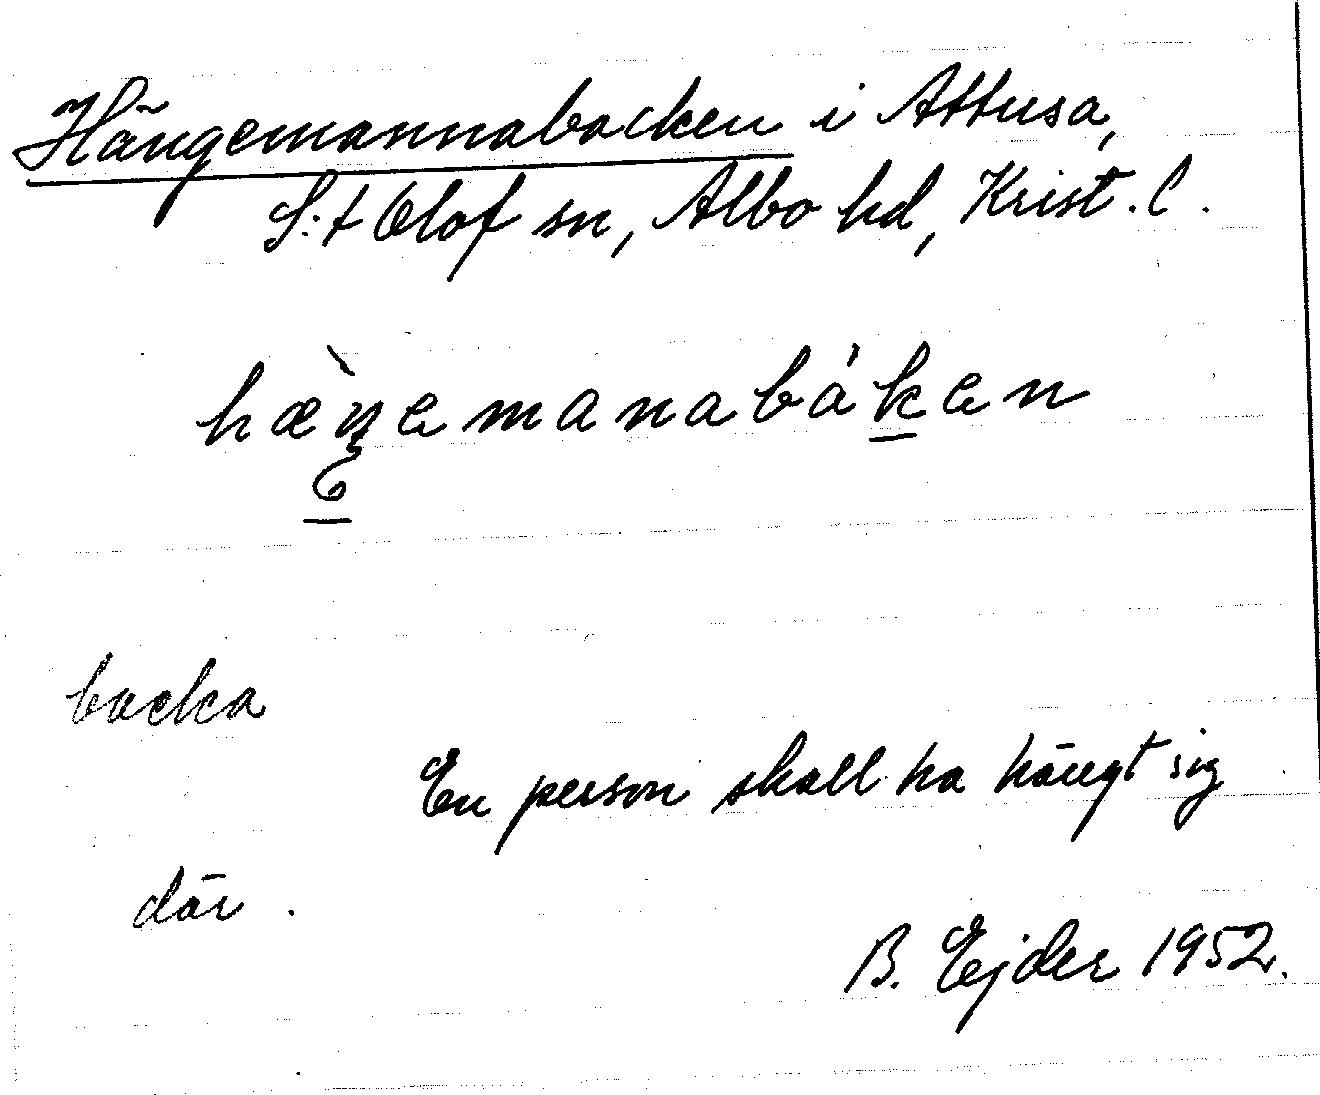 Hängemannabacken i Attusa,
S:t Olof sn, Albo hd, Krist. l.
hæ̀ŋemanabáken
backa
En person skall ha hängt sig
där.
B. Ejder 1952.